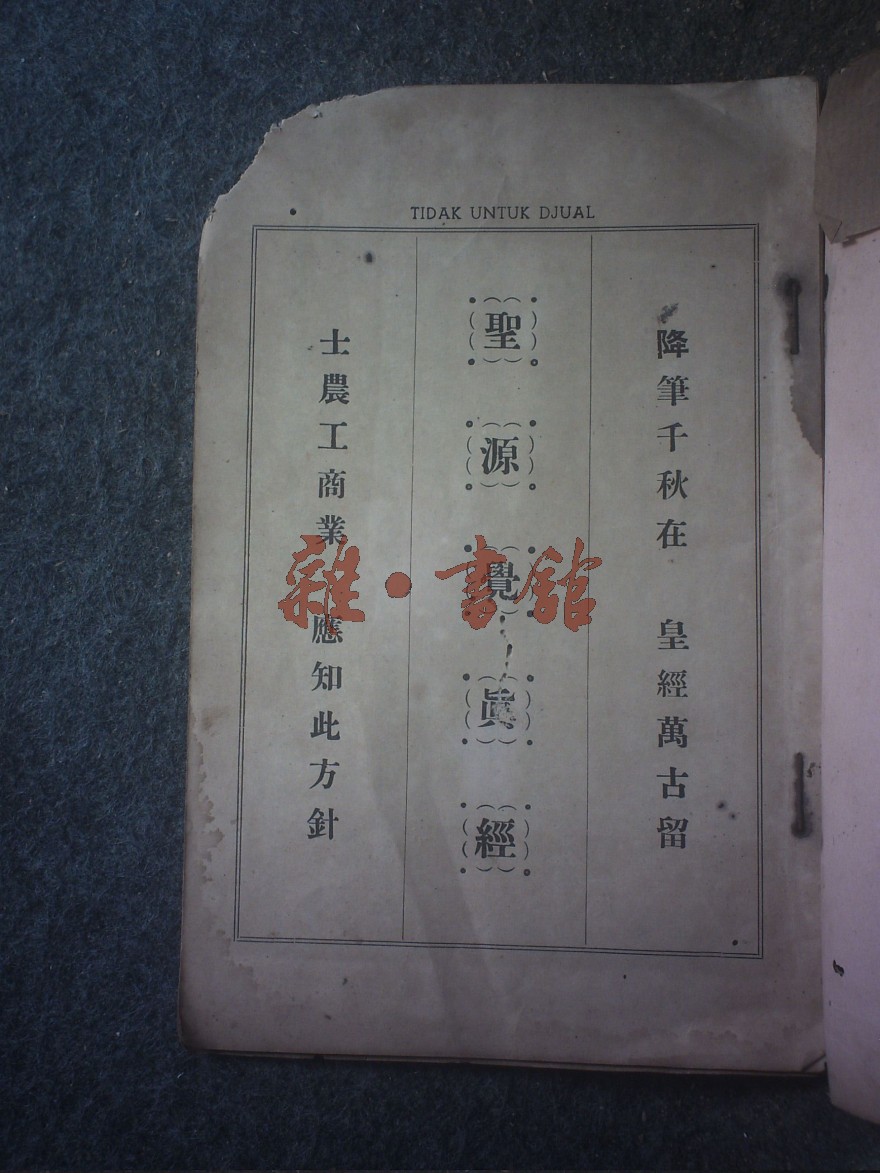 TIDAK UNTUK DJUAL
降筆千秋在　皇經萬古留
聖源覺眞經
士農工商業　應知此方針
雜·書館